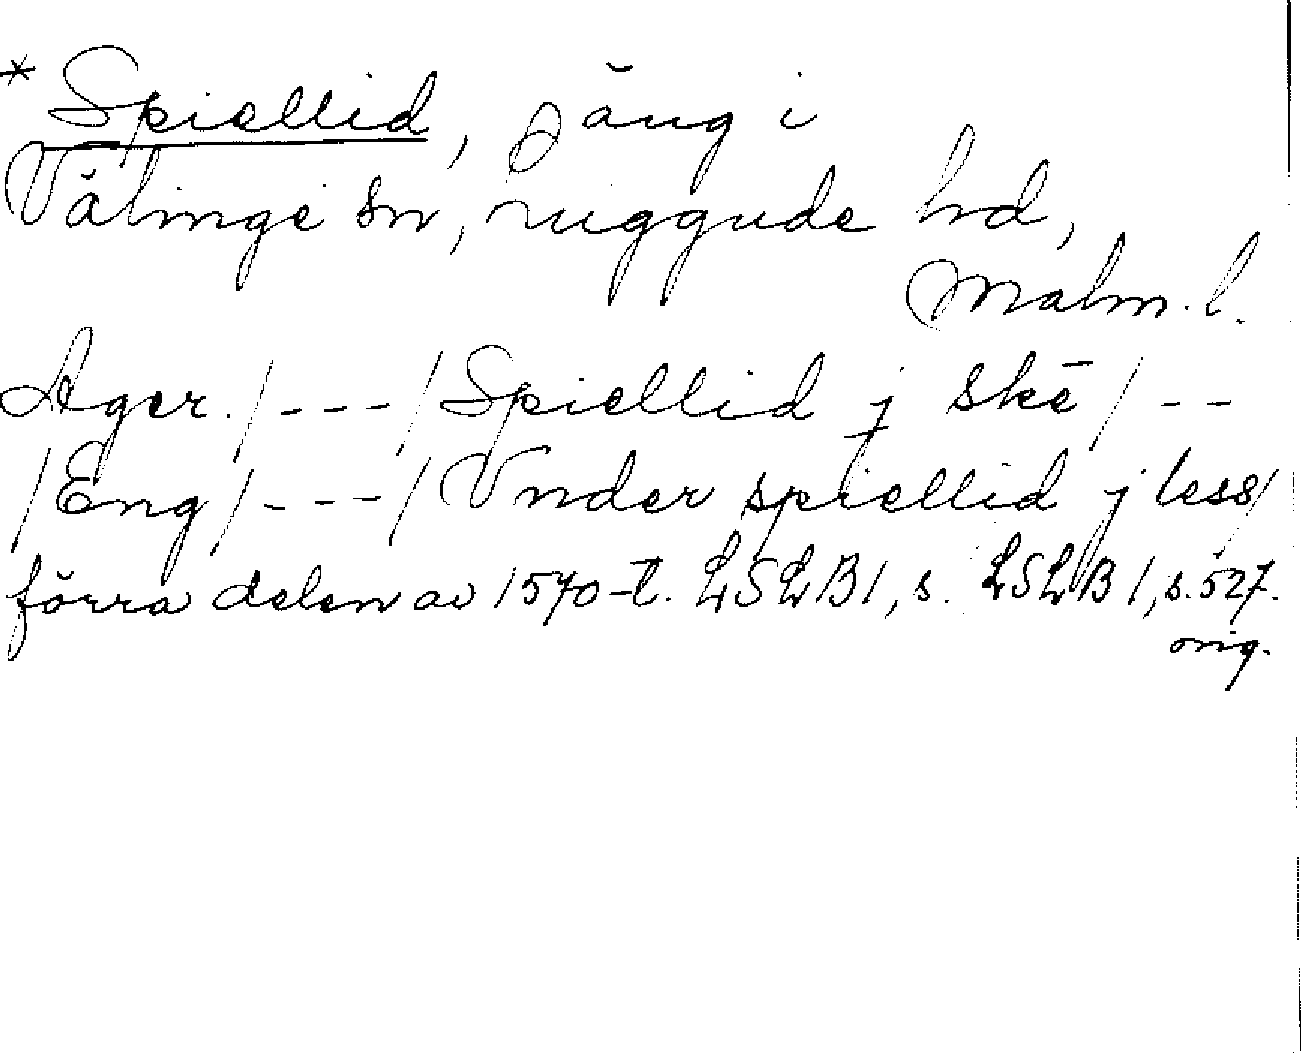 * Spiellid, s äng i
Välinge sn, Luggude hd,
Malm. l.
Ager. /---/ Spiellid j skē /--
/Eng/---/ Vnder spiellid j less/
förra delen av 1570-t. LSLB1, s. LSLB 1, s. 527.
orig.